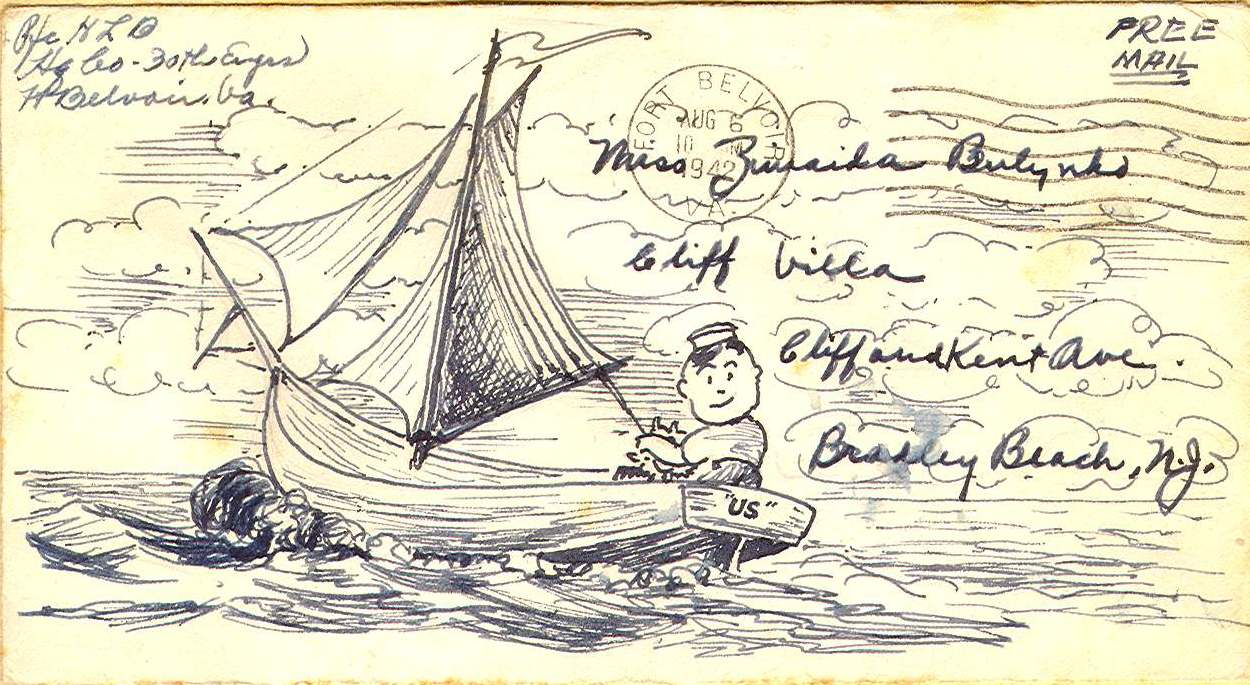 Pfc H L B
Hq Co - 30th Engrs
Ft Belvoir, Va.
FREE
MAIL
FORT BELVOIR
AUG 6
10 M
1942
VA.
Miss Zinaida
Cliff Villa
Cliff and Kent Ave.
Bradley Beach, N.J.
"US"